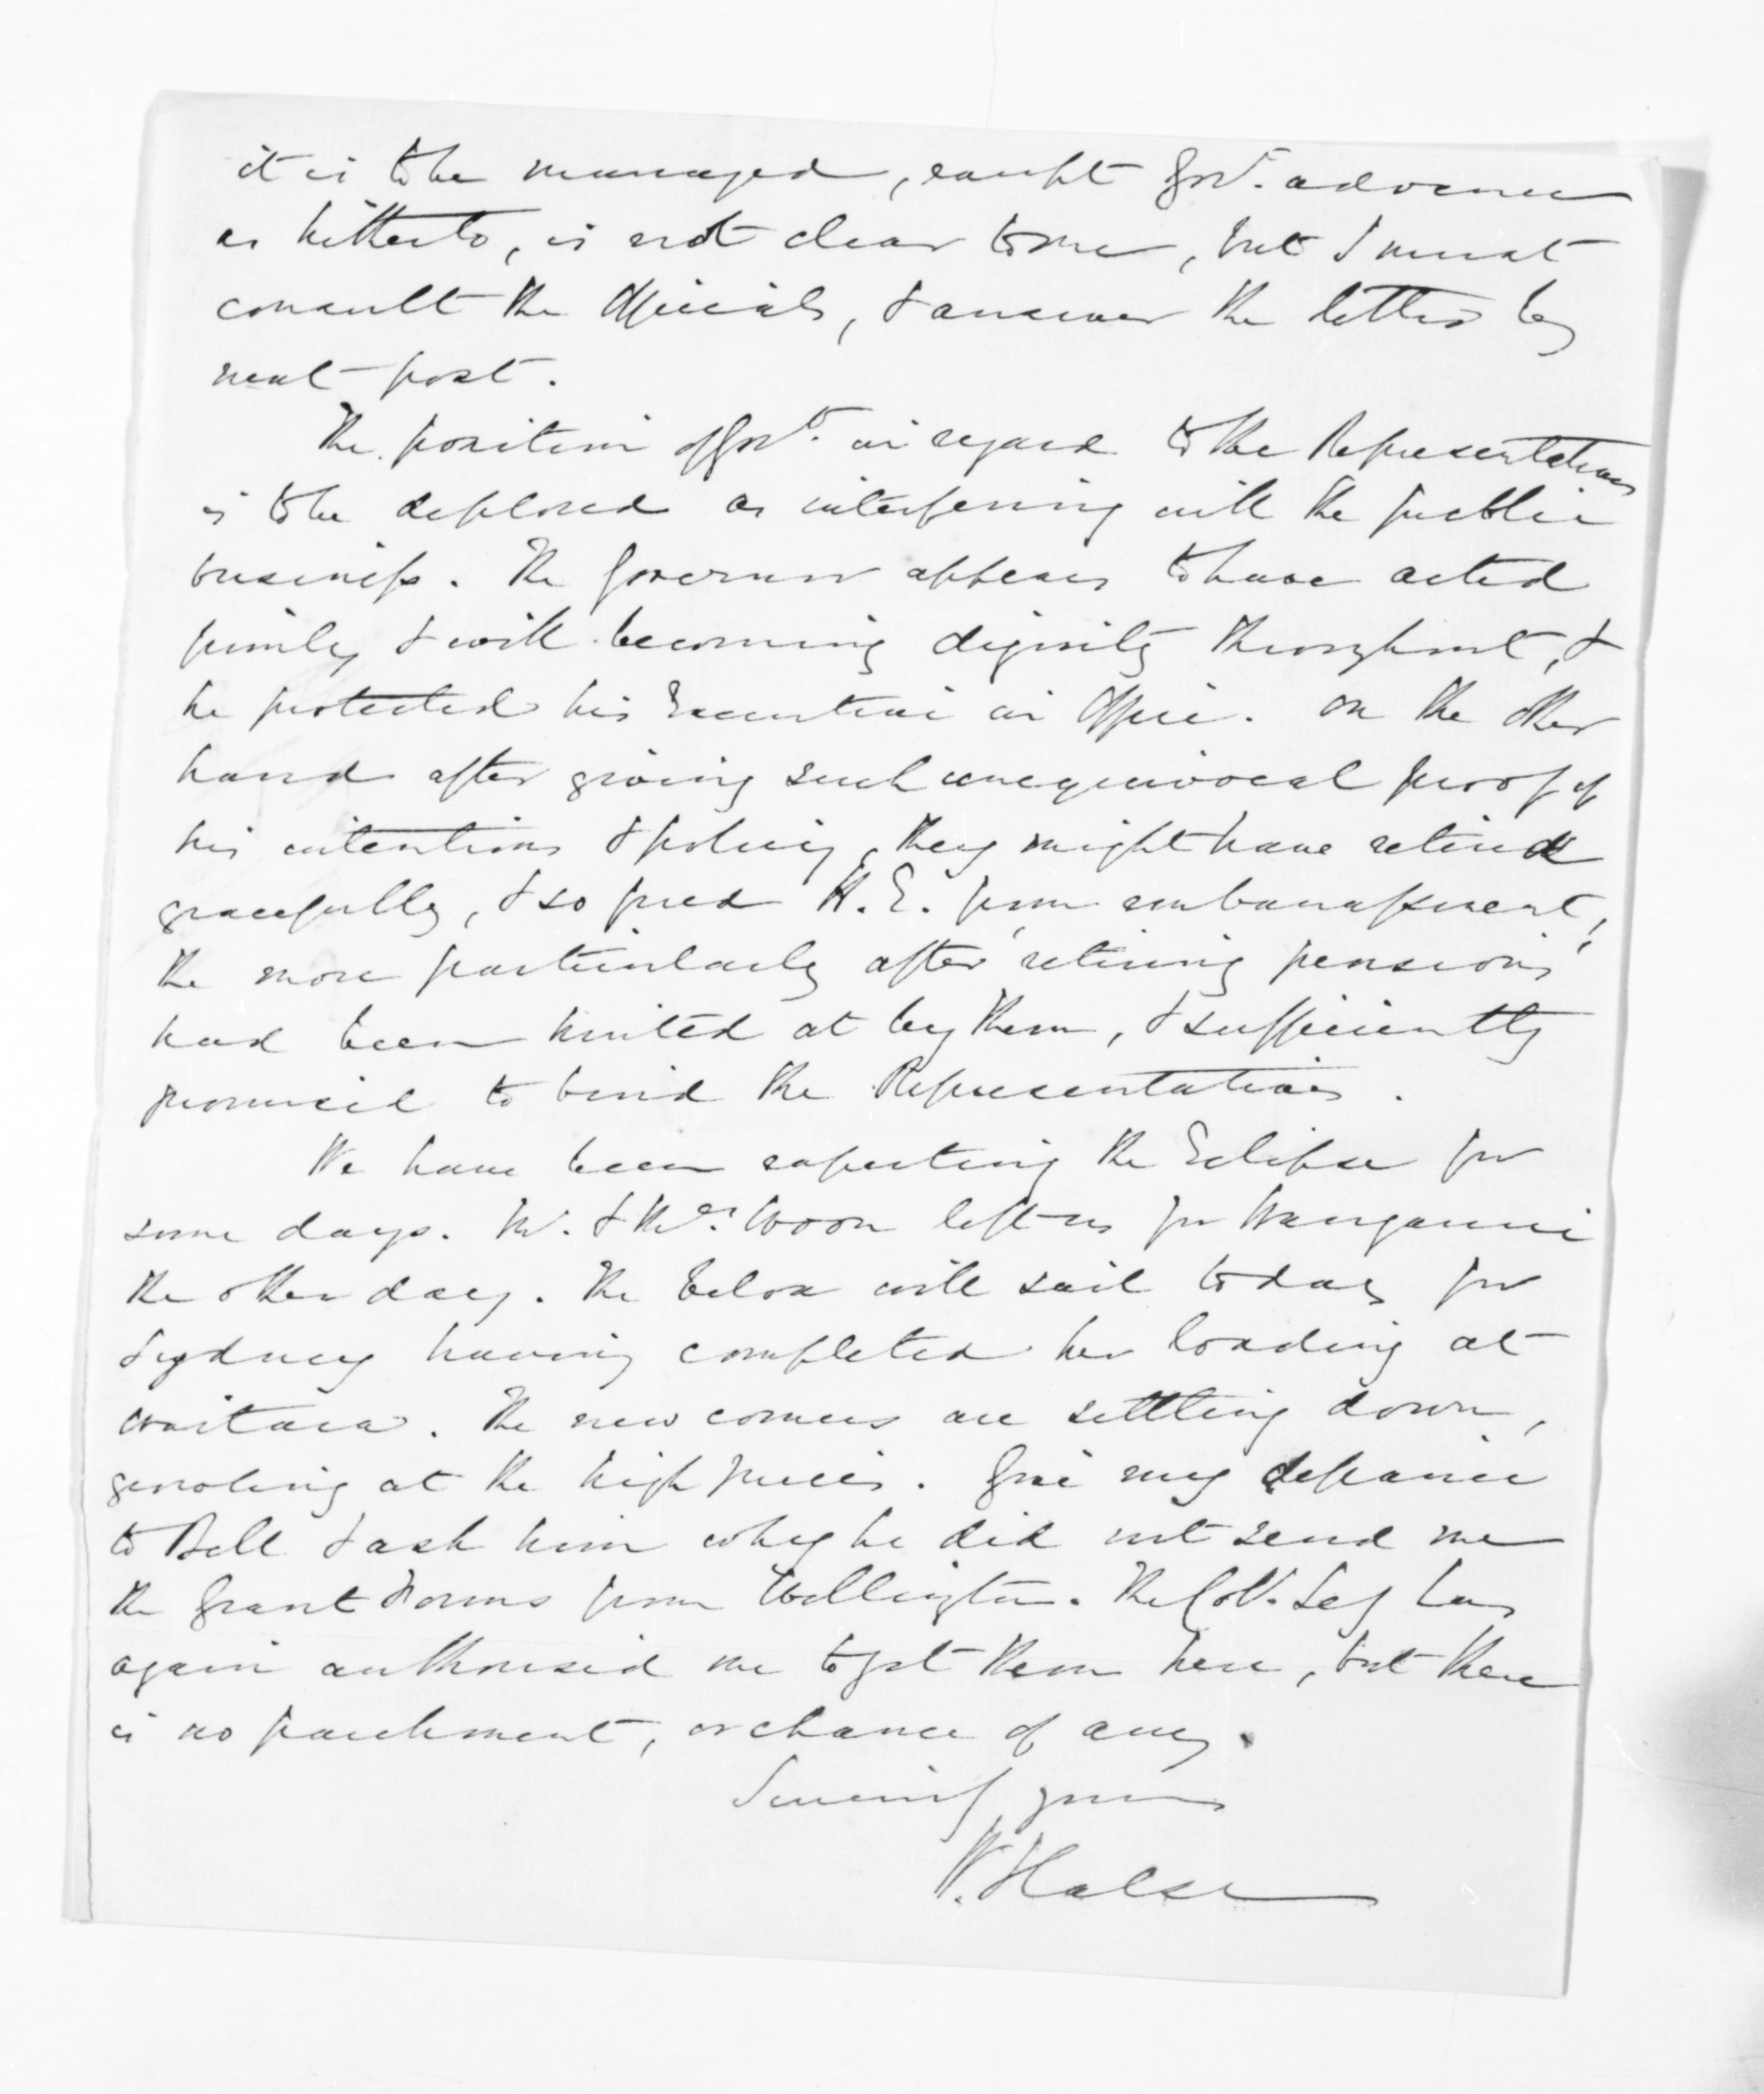 it is to be managed, except Govt. advance
as hitherto, is not clear to me, but I must
consult the Officials, & answer the letter by
next post.
The position of Govt. in regard to the Representatives
is to be deplored as interfering with the public
business. The Governor appears to have acted
firmly & with becoming dignity throughout, &
he protected his Executive in Office. On the other
hand after giving such unequivocal proof of
his intentions & policy, they might have retired
gracefully, & so freed H.E. from embarrassment,
the more particularly after retiring pensions
had been hinted at by them, & sufficiently
promised to bind the Representatives.
We have been expecting the Eclipse for
some days. Mr. & Mrs. Woon left us for Wanganui
the other day. The will sail today for
Sydney having completed her loading at
Waitara. The new comers are settling down,
growling at the high prices. Give my defiance
to Bell & ask him why he did not send me
the Grant Forms from Wellington. The Col. Sec has
again authorised me to get them here, but there
is no parchment, or chance of any.
Sincerely yours
W. Halse